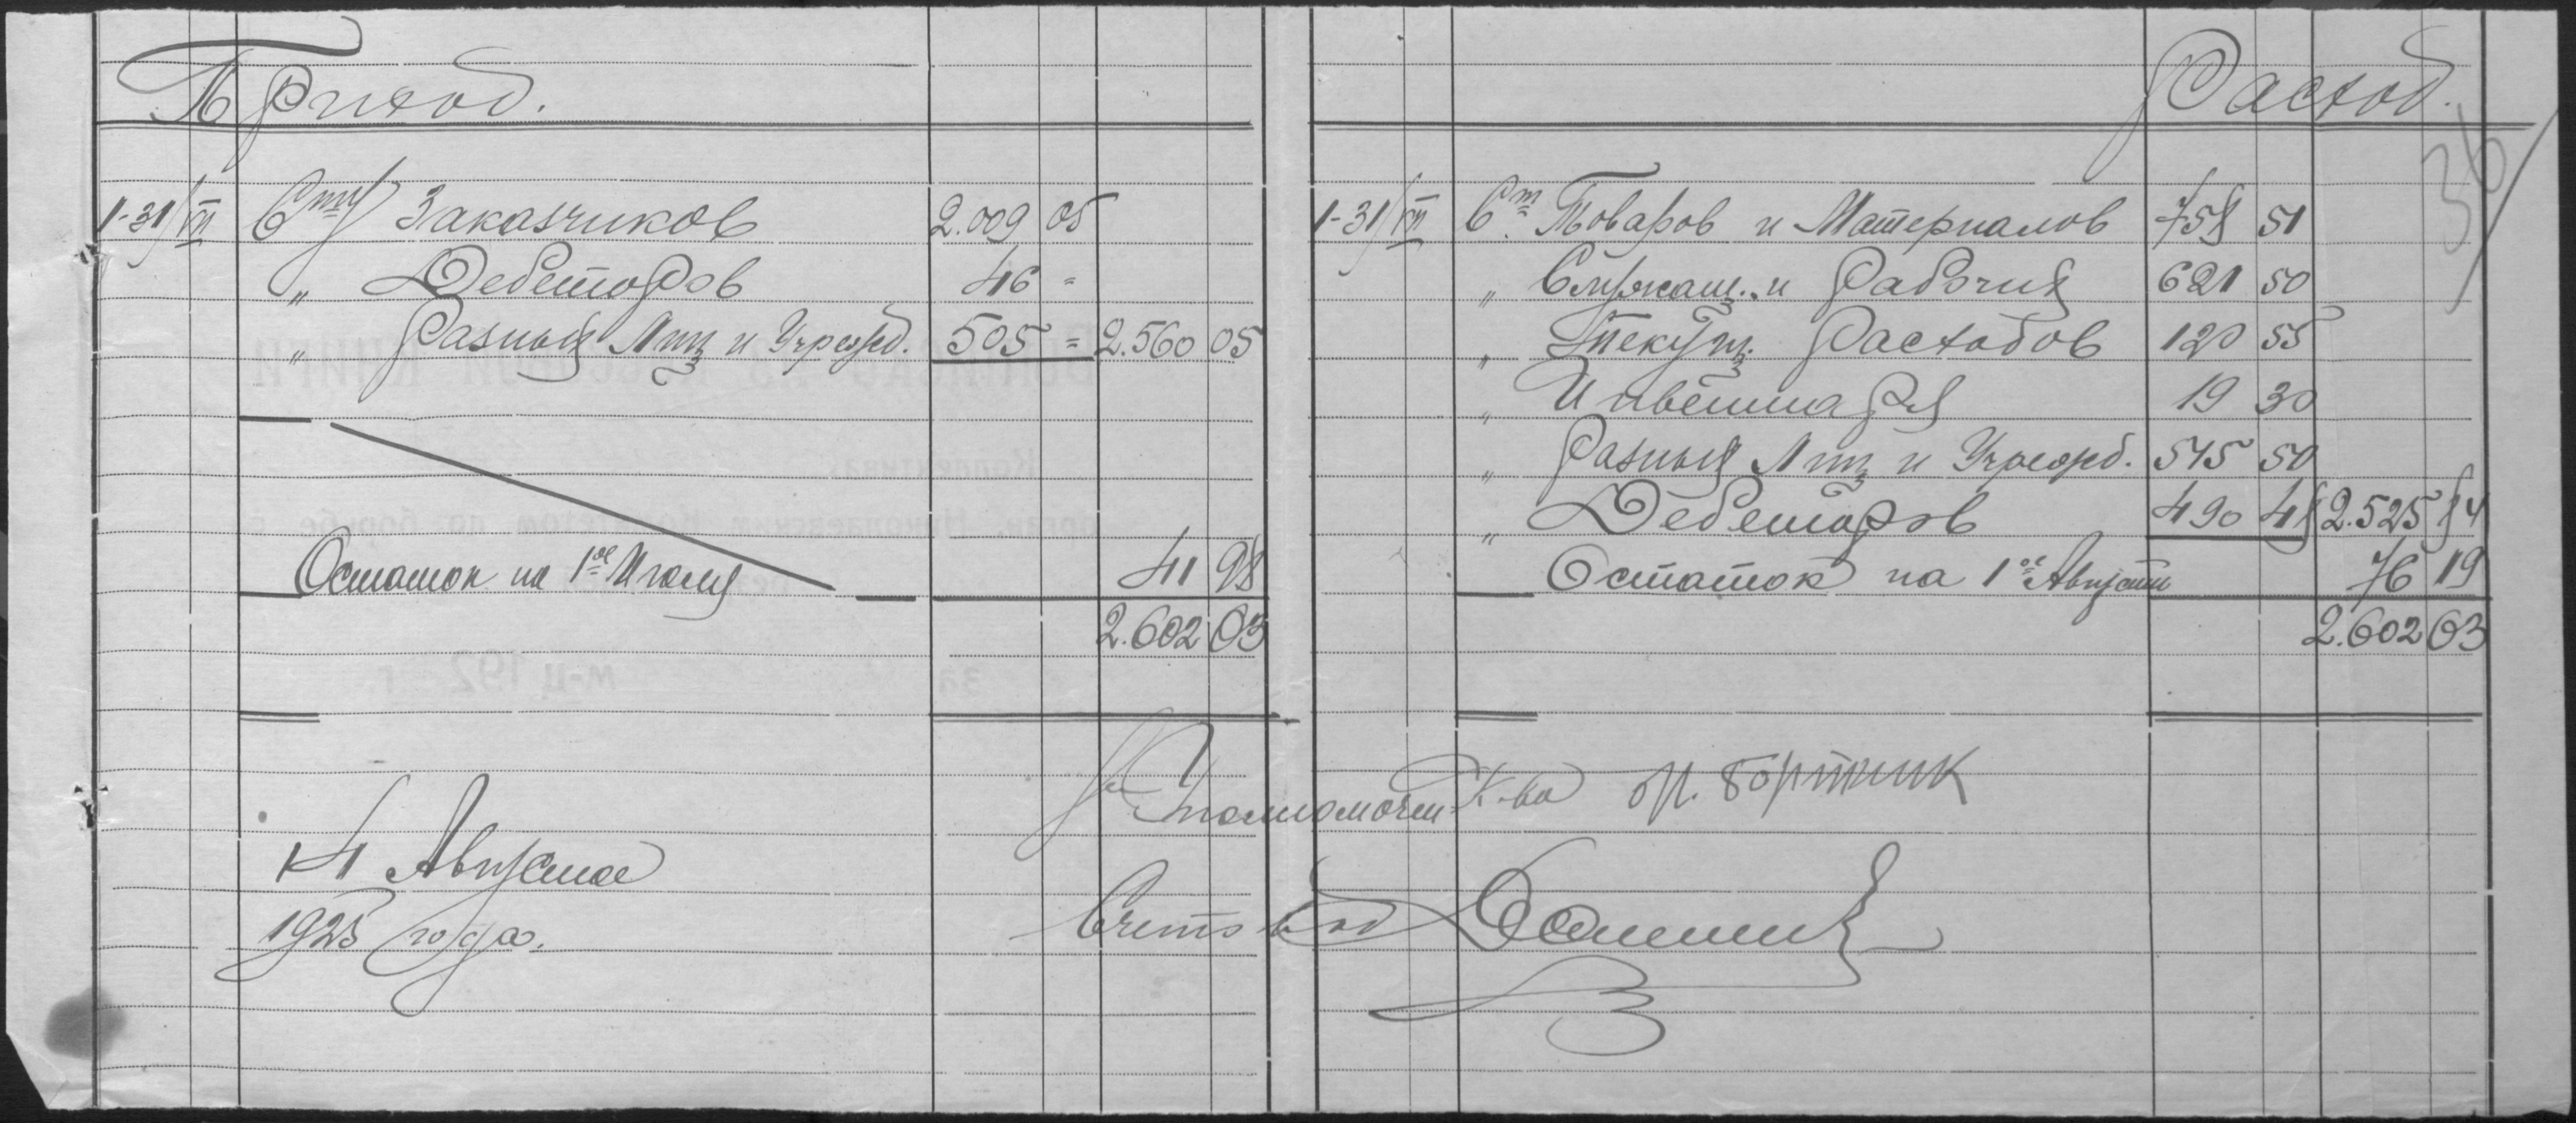 Приход.
1-31/VII Сту Заказчиков 2.009 05
" Дебеторов 46 =
" Разных Лиц и Учрежд. 505 = 2.560 05
Остаток на 1ое Июля 41 98
2.602 03
14 Августа
1925 года.
Расход.
36
1-31/VII Ст. Товаров и Материалов 758 51
" Служащ. и Рабочих 621 50
" Текущ. Расходов 120 55
" Инвентаря 19 30
" Разных Лиц и Учрежд. 515 50
" Дебеторов 490 48 2.525 84
Остаток на 1ое Августа 76 19
2.602 03
Уполномочен К-ва Бортник
Счетовод